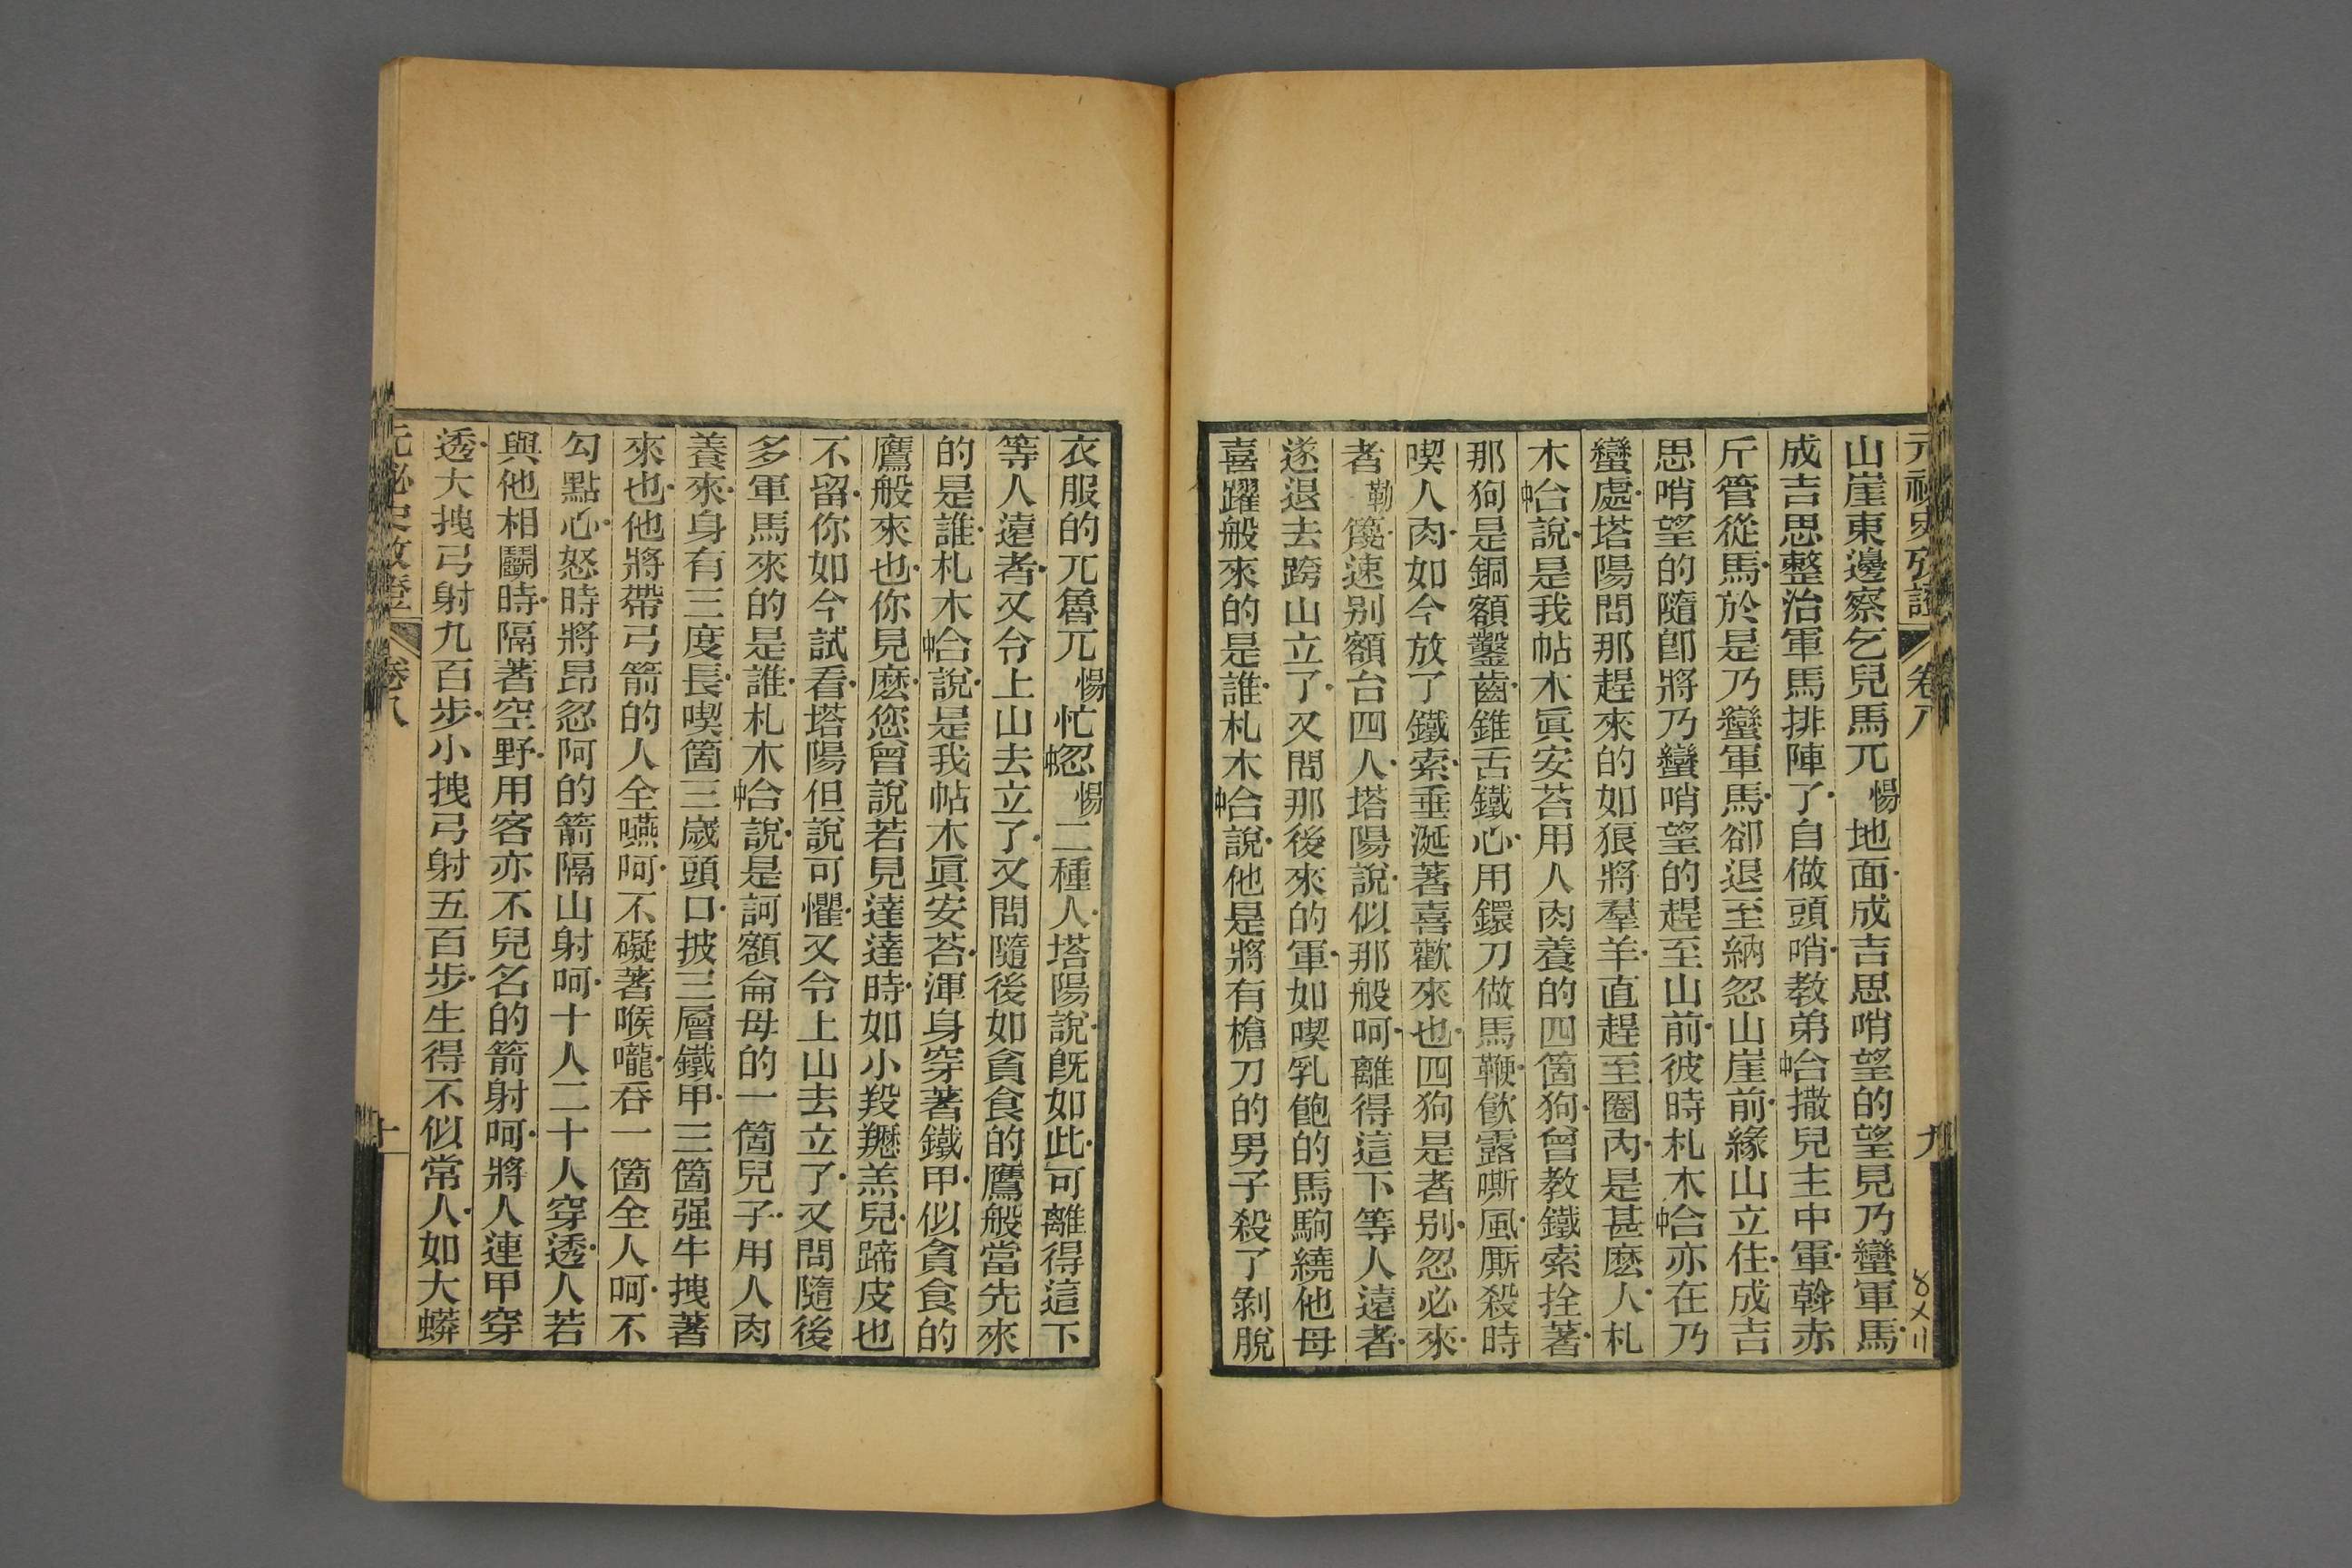 元祕史攷證 卷八 九
8メ11
山崖東邊察乞兒馬兀惕地面成吉思哨望的望見乃蠻軍馬
成吉思整治軍馬排陣了自做頭哨教弟中合撒兒主中軍斡赤
斤管從馬於是乃蠻軍馬卻退至納忽山崖前緣山立住成吉
思哨望的隨卽將乃蠻哨望的趕至山前彼時札木中合亦在乃
蠻處塔陽問那趕來的如狼將羣羊直趕至圈內是甚麽人札
木中合說是我帖木眞安荅用人肉養的四箇狗曾教鐵索拴著
那狗是銅額鑿齒錐舌鐵心用鐶刀做馬鞭飮露嘶風厮殺時
喫人肉如今放了鐵索垂涎著喜歡來也四狗是者別忽必來
者勒篾速別額台四人塔陽說似那般呵離得這下等人遠者
遂退去跨山立了又問那後來的軍如喫乳飽的馬駒繞他母
喜躍般來的是誰札木中合說他是將有槍刀的男子殺了剝脫
衣服的兀魯兀惕忙中忽惕二種人塔陽說旣如此可離得這下
等人遠者又令上山去立了又問隨後如貪食的鷹般當先來
的是誰札木中合說是我帖木眞安荅渾身穿著鐵甲似貪食的
鷹般來也你見麽您曾說若見達達時如小羖䍽羔兒蹄皮也
不留你如今試看塔陽但說可懼又令上山去立了又問隨後
多軍馬來的是誰札木中合說是訶額侖母的一箇兒子用人肉
養來身有三度長喫箇三歲頭口披三層鐵甲三箇强牛拽著
來也他將帶弓箭的人全嚥呵不礙著喉嚨吞一箇全人呵不
勾點心怒時將昂忽阿的箭隔山射呵十人二十人穿透人若
與他相鬭時隔著空野用客亦不兒名的箭射呵將人連甲穿
透大拽弓射九百步小拽弓射五百步生得不似常人如大蟒
元祕史攷證 卷八 十